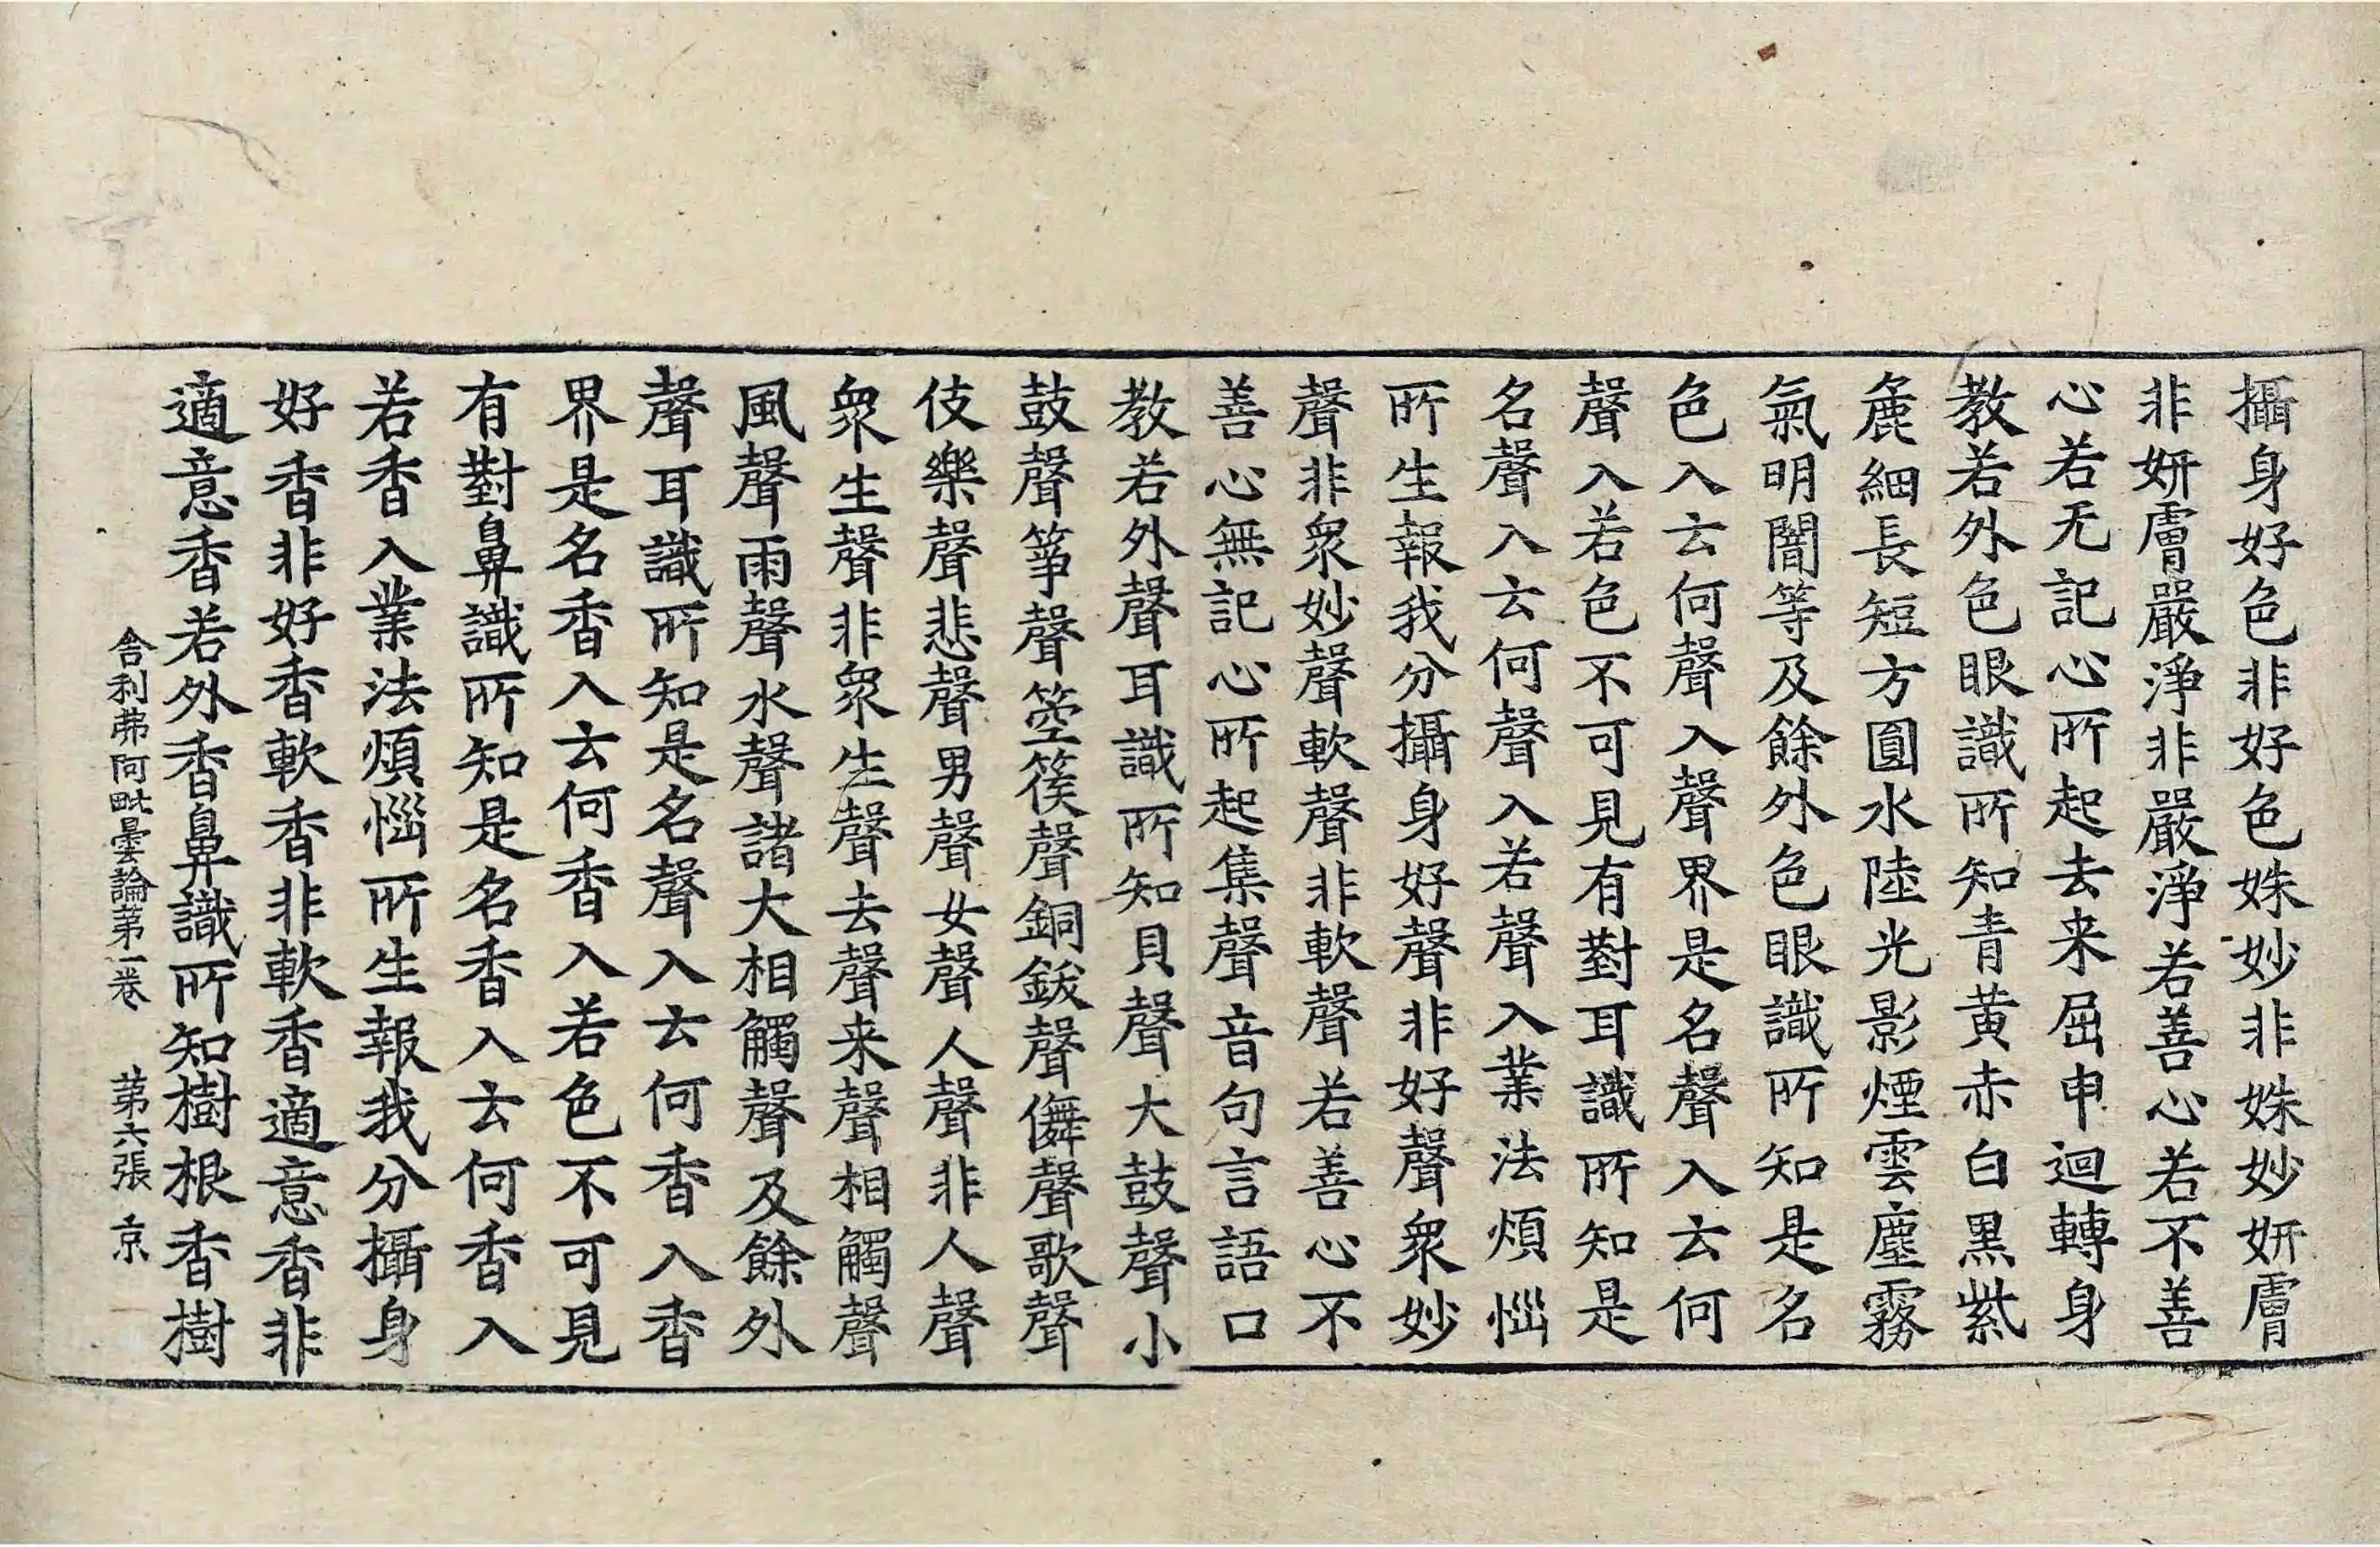 攝身好色非好色姝妙非姝妙妍膚
非妍膚嚴淨非嚴淨若善心若不善
心若无記心所起去来屈申迴轉身
教若外色眼識所知青黄赤白黒紫
麁細長短方圓水陸光影煙雲塵霧
氣明闇等及餘外色眼識所知是名
色入云何聲入聲界是名聲入云何
聲入若色不可見有對耳識所知是
名聲入云何聲入若聲入業法煩惱
所生報我分攝身好聲非好聲衆妙
聲非衆妙聲軟聲非軟聲若善心不
善心無記心所起集聲音句言語口
教若外聲耳識所知貝聲大鼓聲小
鼓聲箏聲箜篌聲銅鈸聲儛聲歌聲
伎樂聲悲聲男聲女聲人聲非人聲
衆生聲非衆生聲去聲来聲相觸聲
風聲雨聲水聲諸大相觸聲及餘外
聲耳識所知是名聲入云何香入香
界是名香入云何香入若色不可見
有對鼻識所知是名香入云何香入
若香入業法煩惱所生報我分攝身
好香非好香軟香非軟香適意香非
適意香若外香鼻識所知樹根香樹
舍利弗阿毗曇論第一卷 第六張 京